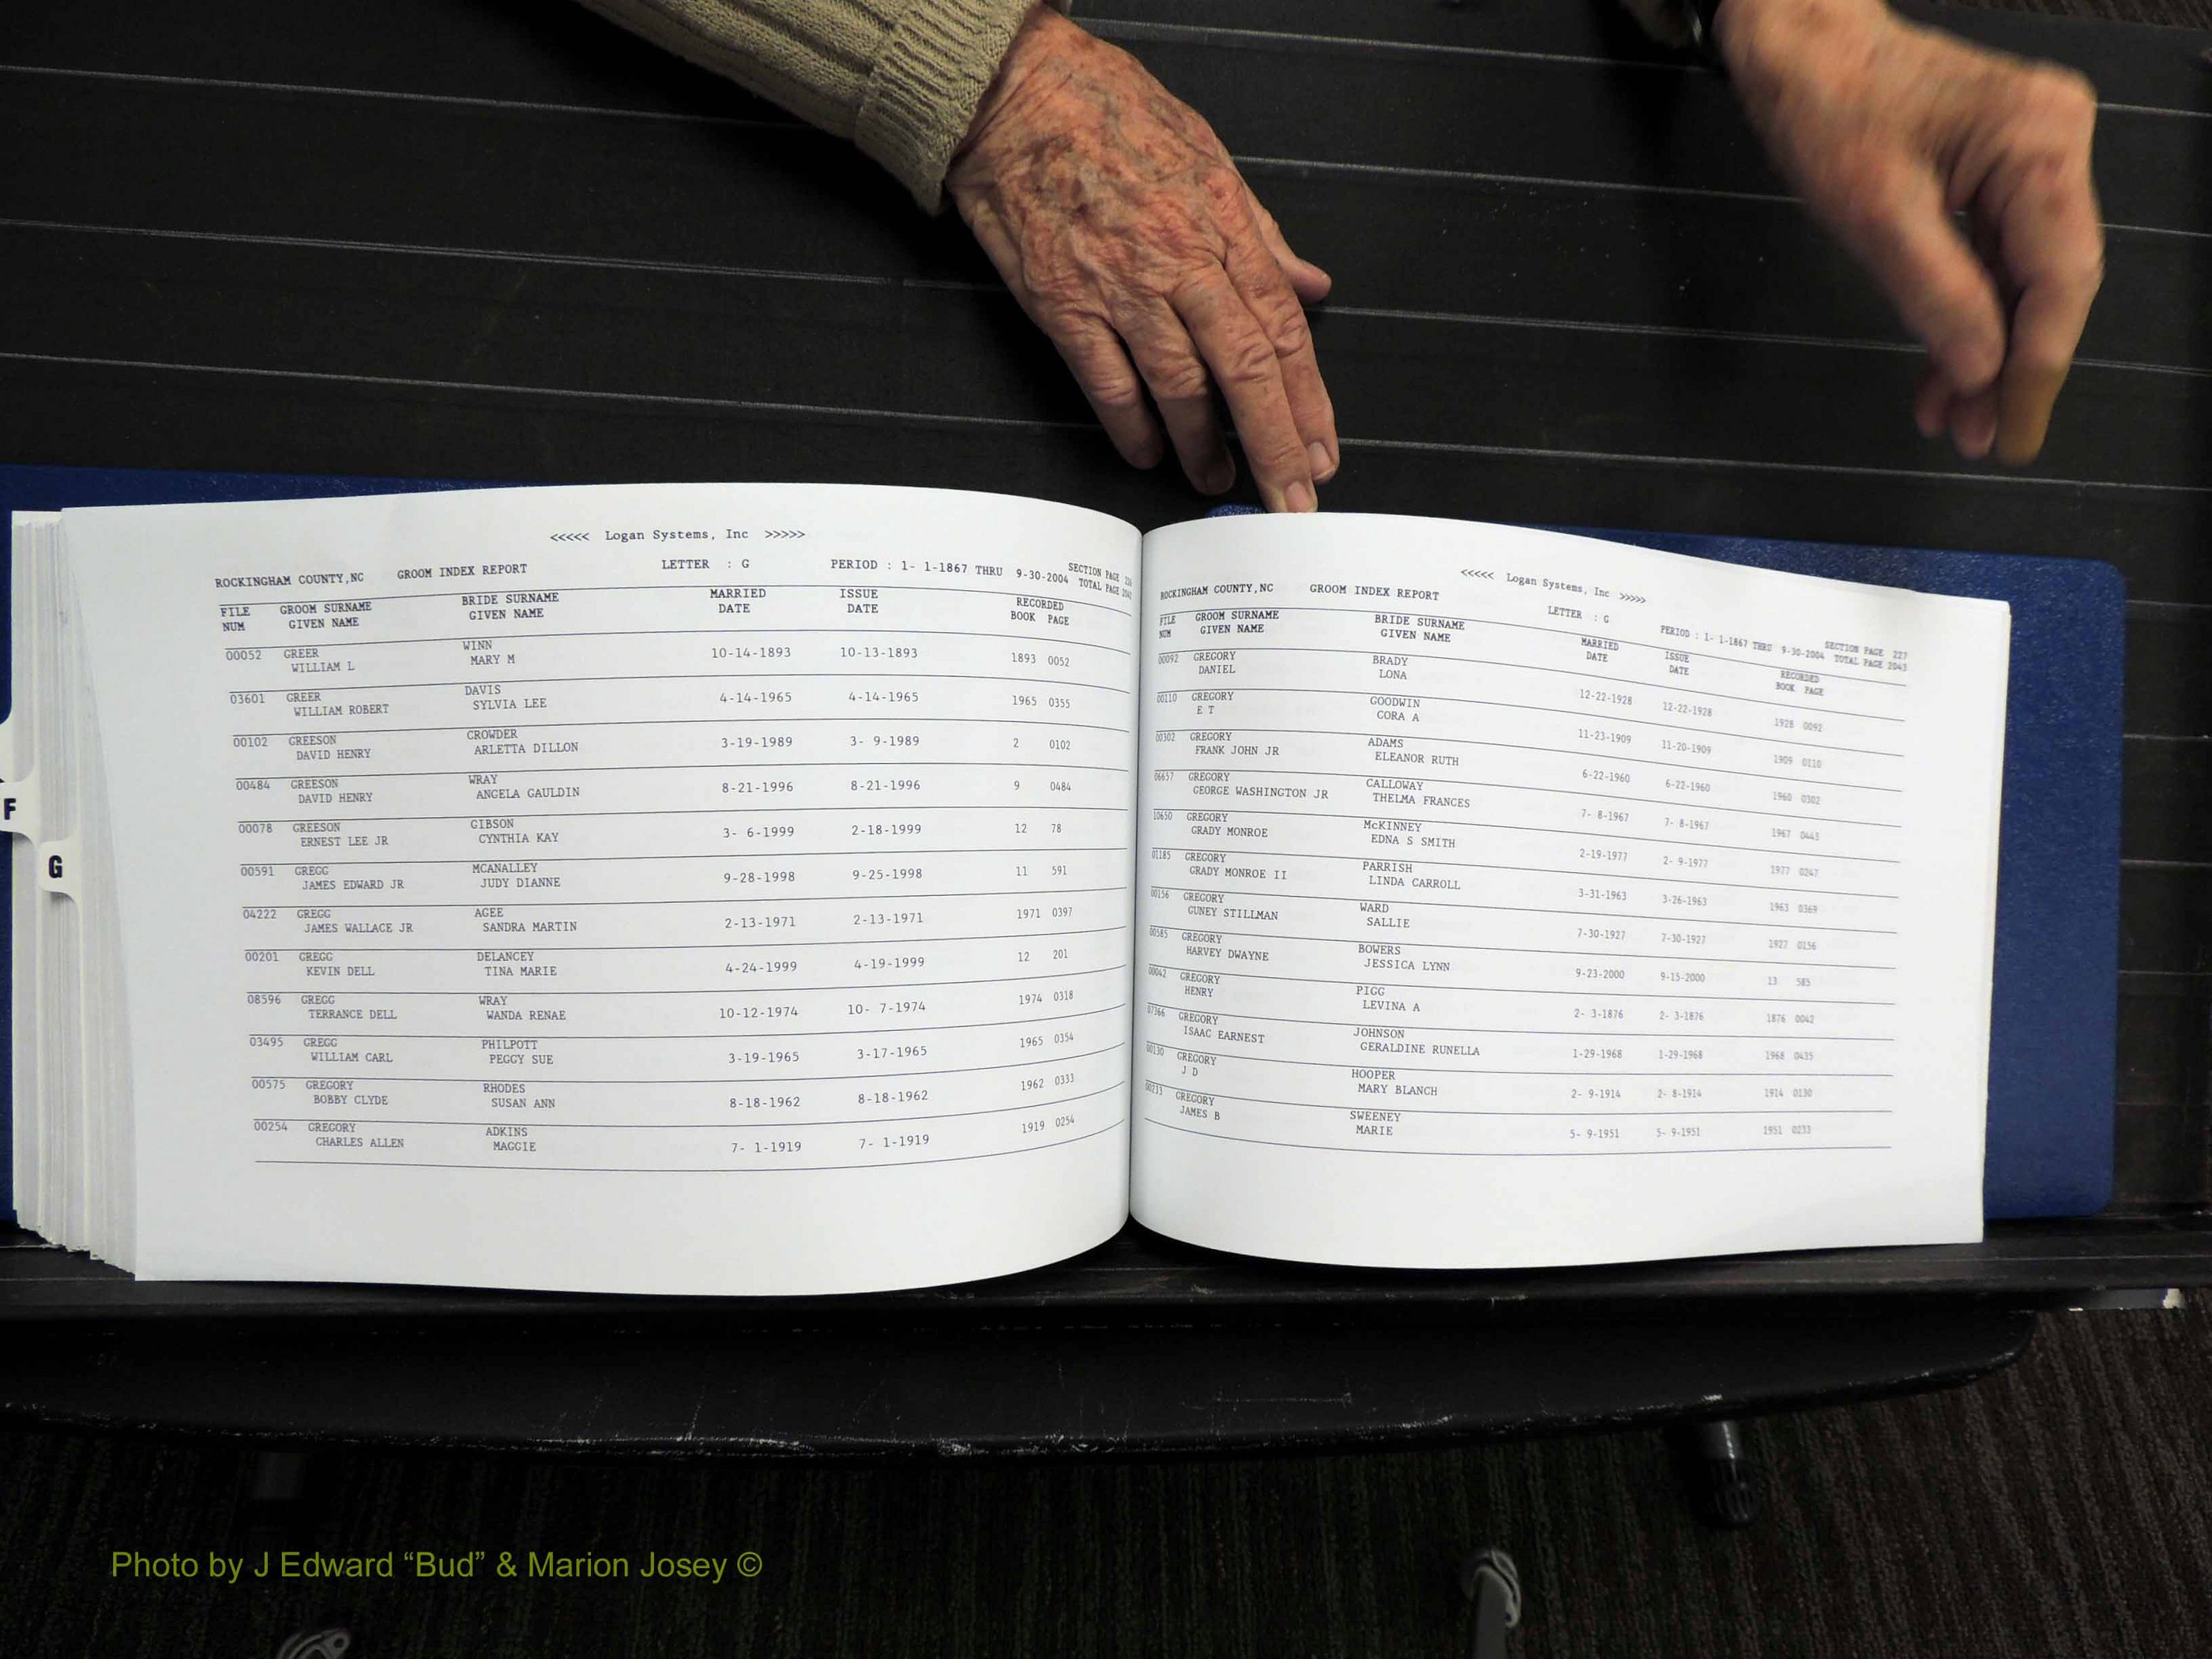 <<<<< Logan Systems, Inc >>>>>
ROCKINGHAM COUNTY,NC GROOM INDEX REPORT LETTER : G PERIOD : 1- 1-1867 THRU 9-30-2004 SECTION PAGE 226
TOTAL PAGE 2043
FILE GROOM SURNAME BRIDE SURNAME MARRIED ISSUE RECORDED
NUM GIVEN NAME GIVEN NAME DATE DATE BOOK PAGE
00052 GREER WINN 10-14-1893 10-13-1893 1893 0052
WILLIAM L MARY M
03601 GREER DAVIS 4-14-1965 4-14-1965 1965 0355
WILLIAM ROBERT SYLVIA LEE
00102 GREESON CROWDER 3-19-1989 3- 9-1989 2 0102
DAVID HENRY ARLETTA DILLON
00484 GREESON WRAY 8-21-1996 8-21-1996 9 0484
DAVID HENRY ANGELA GAULDIN
00078 GREESON GIBSON 3- 6-1999 2-18-1999 12 78
ERNEST LEE JR CYNTHIA KAY
00591 GREGG MCANALLEY 9-28-1998 9-25-1998 11 591
JAMES EDWARD JR JUDY DIANNE
04222 GREGG AGEE 2-13-1971 2-13-1971 1971 0397
JAMES WALLACE JR SANDRA MARTIN
00201 GREGG DELANCEY 4-24-1999 4-19-1999 12 201
KEVIN DELL TINA MARIE
08596 GREGG WRAY 10-12-1974 10- 7-1974 1974 0318
TERRANCE DELL WANDA RENAE
03495 GREGG PHILPOTT 3-19-1965 3-17-1965 1965 0354
WILLIAM CARL PEGGY SUE
00575 GREGORY RHODES 8-18-1962 8-18-1962 1962 0333
BOBBY CLYDE SUSAN ANN
00254 GREGORY ADKINS 7- 1-1919 7- 1-1919 1919 0254
CHARLES ALLEN MAGGIE
F
G
<<<<< Logan Systems, Inc >>>>>
ROCKINGHAM COUNTY,NC GROOM INDEX REPORT LETTER : G PERIOD : 1- 1-1867 THRU 9-30-2004 SECTION PAGE 227
TOTAL PAGE 2043
FILE GROOM SURNAME BRIDE SURNAME MARRIED ISSUE RECORDED
NUM GIVEN NAME GIVEN NAME DATE DATE BOOK PAGE
00092 GREGORY BRADY 12-22-1928 12-22-1928 1928 0092
DANIEL LONA
00110 GREGORY GOODWIN 11-23-1909 11-20-1909 1909 0110
E T CORA A
00302 GREGORY ADAMS 6-22-1960 6-22-1960 1960 0302
FRANK JOHN JR ELEANOR RUTH
06657 GREGORY CALLOWAY 7- 8-1967 7- 8-1967 1967 0443
GEORGE WASHINGTON JR THELMA FRANCES
10650 GREGORY McKINNEY 2-19-1977 2- 9-1977 1977 0247
GRADY MONROE EDNA S SMITH
01185 GREGORY PARRISH 3-31-1963 3-26-1963 1963 0369
GRADY MONROE II LINDA CARROLL
00156 GREGORY WARD 7-30-1927 7-30-1927 1927 0156
GUNEY STILLMAN SALLIE
00585 GREGORY BOWERS 9-23-2000 9-15-2000 13 585
HARVEY DWAYNE JESSICA LYNN
00042 GREGORY PIGG 2- 3-1876 2- 3-1876 1876 0042
HENRY LEVINA A
07366 GREGORY JOHNSON 1-29-1968 1-29-1968 1968 0435
ISAAC EARNEST GERALDINE RUNELLA
00130 GREGORY HOOPER 2- 9-1914 2- 8-1914 1914 0130
J D MARY BLANCH
00233 GREGORY SWEENEY 5- 9-1951 5- 9-1951 1951 0233
JAMES B MARIE
Photo by J Edward “Bud” & Marion Josey ©